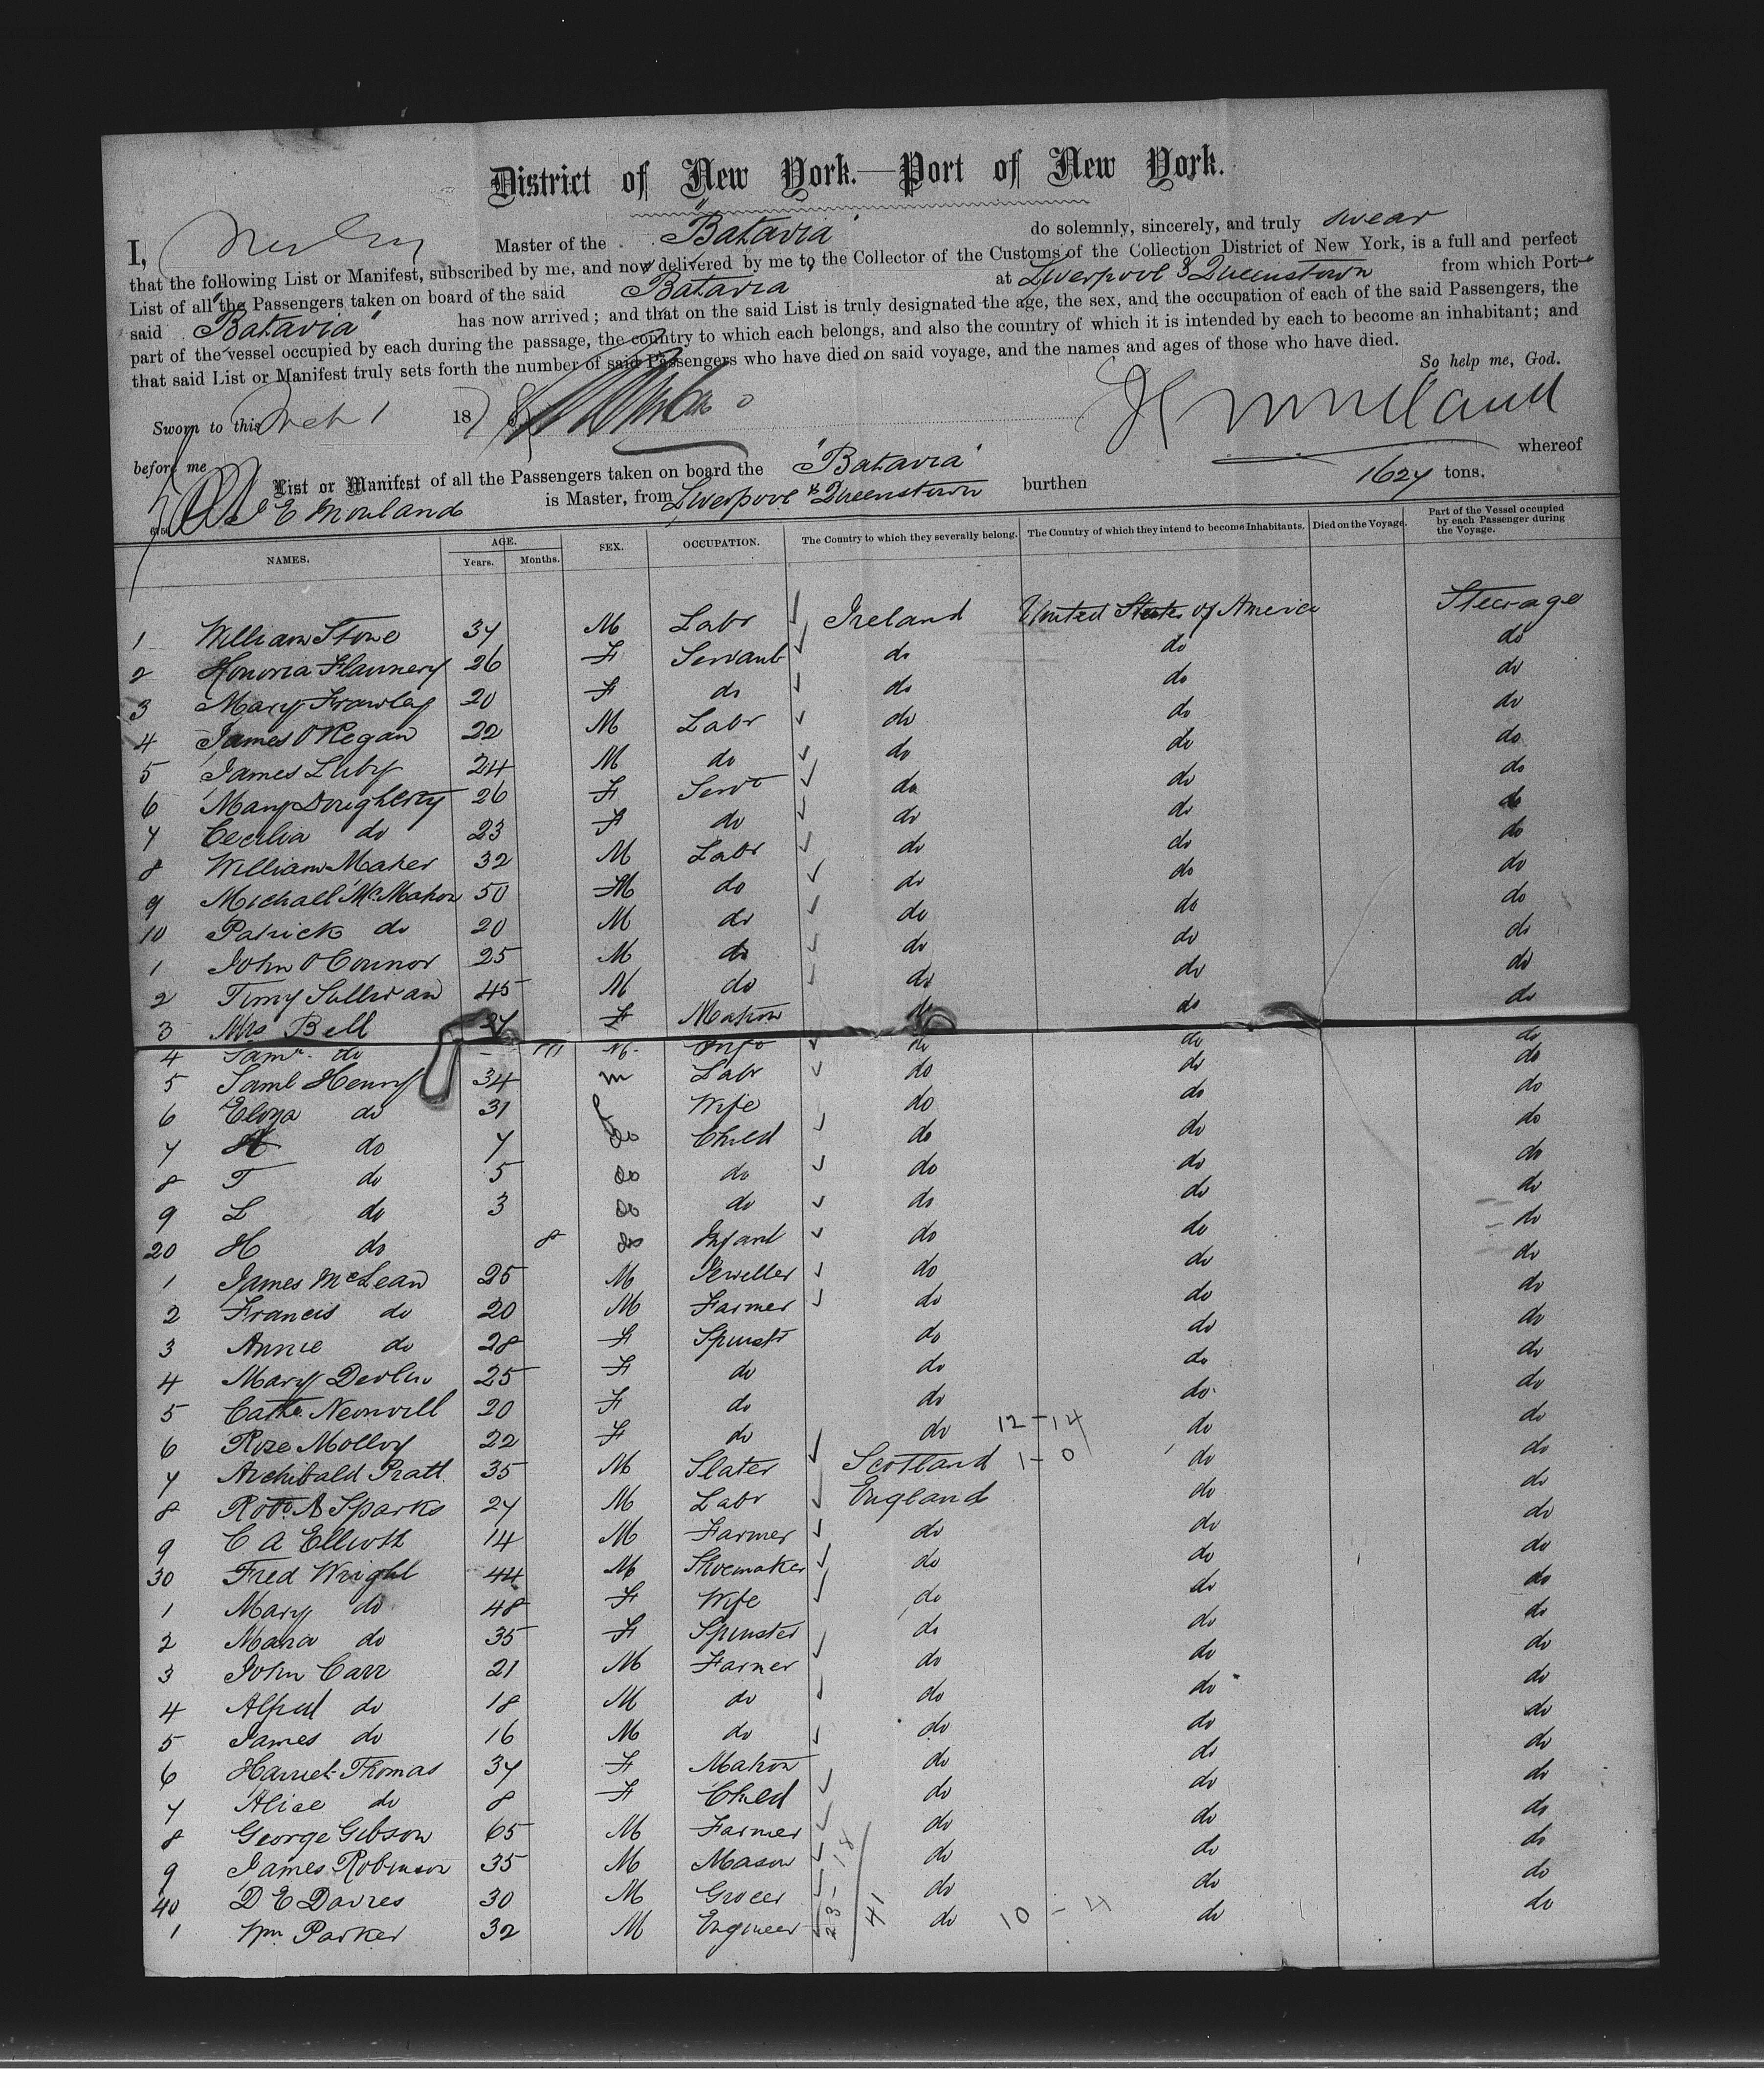 District of New York.—Port of New York.
I, Master of the "Batavia" do solemnly, sincerely, and truly swear
that the following List or Manifest, subscribed by me, and now delivered by me to the Collector of the Customs of the Collection District of New York, is a full and perfect
List of all the Passengers taken on board of the said "Batavia" at Liverpool & Queenstown from which Port
said "Batavia" has now arrived; and that on the said List is truly designated the age, the sex, and the occupation of each of the said Passengers, the
part of the vessel occupied by each during the passage, the country to which each belongs, and also the country of which it is intended by each to become an inhabitant; and
that said List or Manifest truly sets forth the number of said Passengers who have died on said voyage, and the names and ages of those who have died.
So help me, God.
Sworn to this Mch 1 1878
before me
List or Manifest of all the Passengers taken on board the "Batavia" whereof
E Mouland is Master, from Liverpool & Queenstown burthen 1627 tons.
NAMES. AGE. Years. Months. SEX. OCCUPATION. The Country to which they severally belong. The Country of which they intend to become Inhabitants. Died on the Voyage. Part of the Vessel occupied by each Passenger during the Voyage.
1 William Stone 37 M Labr Ireland United States of America Steerage
2 Honoria Flannery 26 F Servant do do do
3 Mary Frawley 20 F do do do do
4 James O'Regan 22 M Labr do do do
5 James Luby 24 M do do do do
6 Mary Dougherty 26 F Servt do do do
7 Cecilia do 23 F do do do do
8 William Maher 32 M Labr do do do
9 Michall McMahon 50 M do do do do
10 Patrick do 20 M do do do do
1 John O'Connor 25 M do do do do
2 Timy Sullivan 45 M do do do do
3 Mrs Bell 27 F Matron do do do
4 Saml do - M Inft do do do
5 Saml Henry 34 m Labr do do do
6 Eliza do 31 f Wife do do do
7 do 7 do Child do do do
8 T do 5 do do do do do
9 L do 3 do do do do do
20 H do 8 do Infant do do do
1 James McLean 25 M Jeweller do do do
2 Francis do 20 M Farmer do do do
3 Annie do 28 F Spinstr do do do
4 Mary Devlin 25 F do do do do
5 Cathe 20 F do do do do
6 Rose Molloy 22 F do do 12-14 do do
7 Archibald Pratt 35 M Slater Scotland 1-0 do do
8 Robt A Sparks 27 M Labr England do do
9 C A Elliott 14 M Farmer do do do
30 Fred Wright 44 M Shoemaker do do do
1 Mary do 48 F Wife do do do
2 Maria do 35 F Spinster do do do
3 John Carr 21 M Farmer do do do
4 Alfred do 18 M do do do do
5 James do 16 M do do do do
6 Harriet Thomas 37 F Matron do do do
7 Alice do 8 F Child do do do
8 George Gibson 65 M Farmer do do do
9 James Robinson 35 M Mason do do do
40 D E Davies 30 M Grocer do do do
1 Wm Parker 32 M Engineer do 10-4 do do
23-18
41